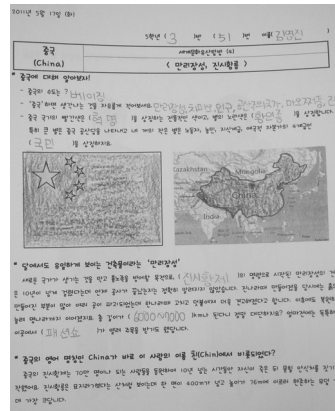 2011년 5월 17일 (화)
5학년 ( 3 )반 ( 51 )번 이름( 김명진
중국
(China)
세계문화유산탐방 (2)
( 만리장성, 진시황릉 )
* 중국에 대해 알아보자!
- 중국의 수도는? 베이징
- '중국'하면 생각나는 것을 자유롭게 적어보세요. 만리장성, 치파오, 인구,
- 중국 국기의 빨간색은 ( 혁명 )을 상징하는 전통적인 색이고, 별의 노란색은 ( 황인종 )을 상징합니다.
특히 큰 별은 중국 공산당을 나타내고 네 개의 작은 별은 노동자, 농민, 지식계급, 애국적 자본가의 4계급인
( 국민 )을 상징하지요.
Kazakhstan
Mongolia
China
India
* 달에서도 유일하게 보이는 건축물이라는 '만리장성'
새로운 국가가 생기는 것을 막고 흉노족을 방어할 목적으로, ( 진시황제 )의 명령으로 시작된 만리장성의 건
은 10년이 넘게 걸렸다는데 언제 공사가 끝났는지는 정확히 알려지지 않았습니다. 진나라때 만들어졌을 당시에는 흙으
만들어진 부분이 많아 여러 곳이 파괴되었는데 한나라때 고치고 명나라때 더욱 견고해졌다고 합니다. 이후에도 북쪽
늘려 명나라까지 이어졌지요. 총 길이가 ( 6000~7000 )km나 된다니 정말 대단하지요? 얼마전에는 독특하
이곳에서 ( 패션쇼 )가 열려 주목을 받기도 했답니다.
* 중국의 영어 명칭인 China가 바로 이 사람의 이름 친(Chin)에서 비롯되었다?
중국의 진시황제는 70만 명이나 되는 사람들을 동원하여 10년 넘는 시간동안 자신이 죽은 뒤 묻힐 안식처를 짓기
작했어요. 진시황릉은 묘지라기보다는 산처럼 보이는데 한 면이 400m가 넘고 높이가 76m에 이르러 현존하는 무덤
데 가장 큽니다.